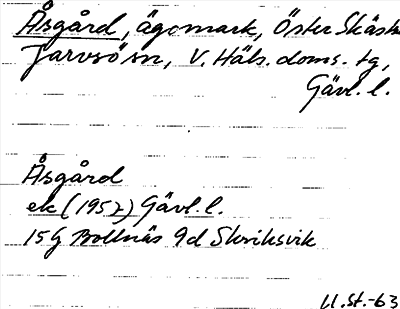 Åsgård, ägomark, Öster Skästra
Järvsö sn, V. Häls. doms. tg,
Gävl. l.
Åsgård
ek (1952) Gävl. l.
15G Bollnäs 9d Skriksvik
U.St.-63